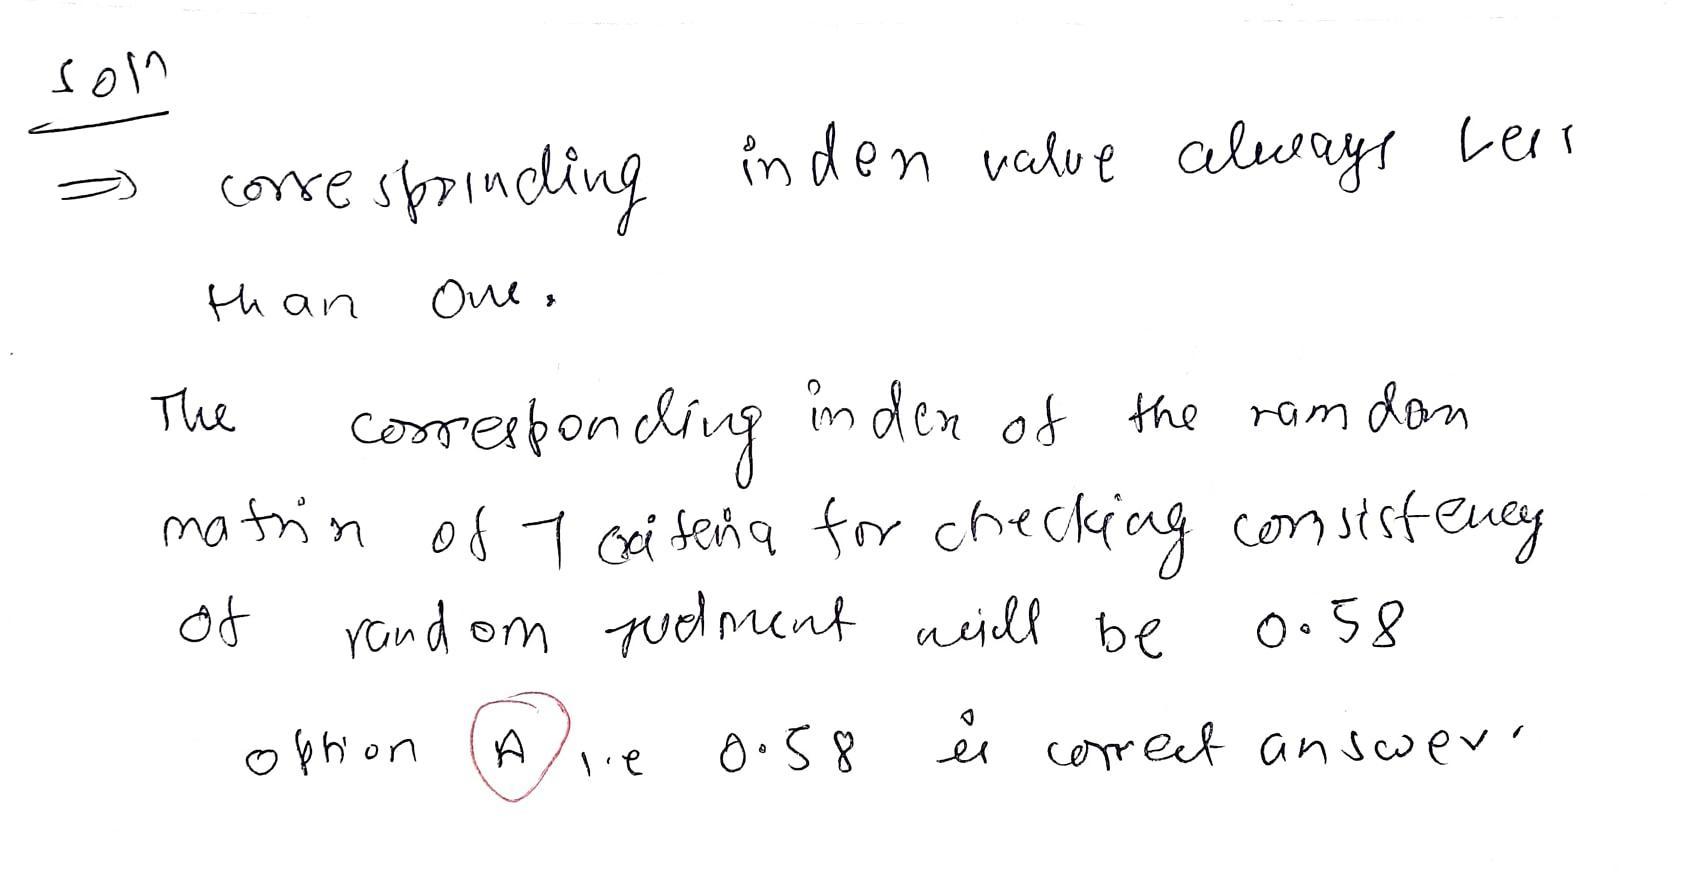 soln
⇒ corresponding inden value always less
than one.
The corresponding inden of the ramdom
matrin of 7 criteria for checking consistency
of random judment will be 0.58
option A i.e 0.58 is correct answer.